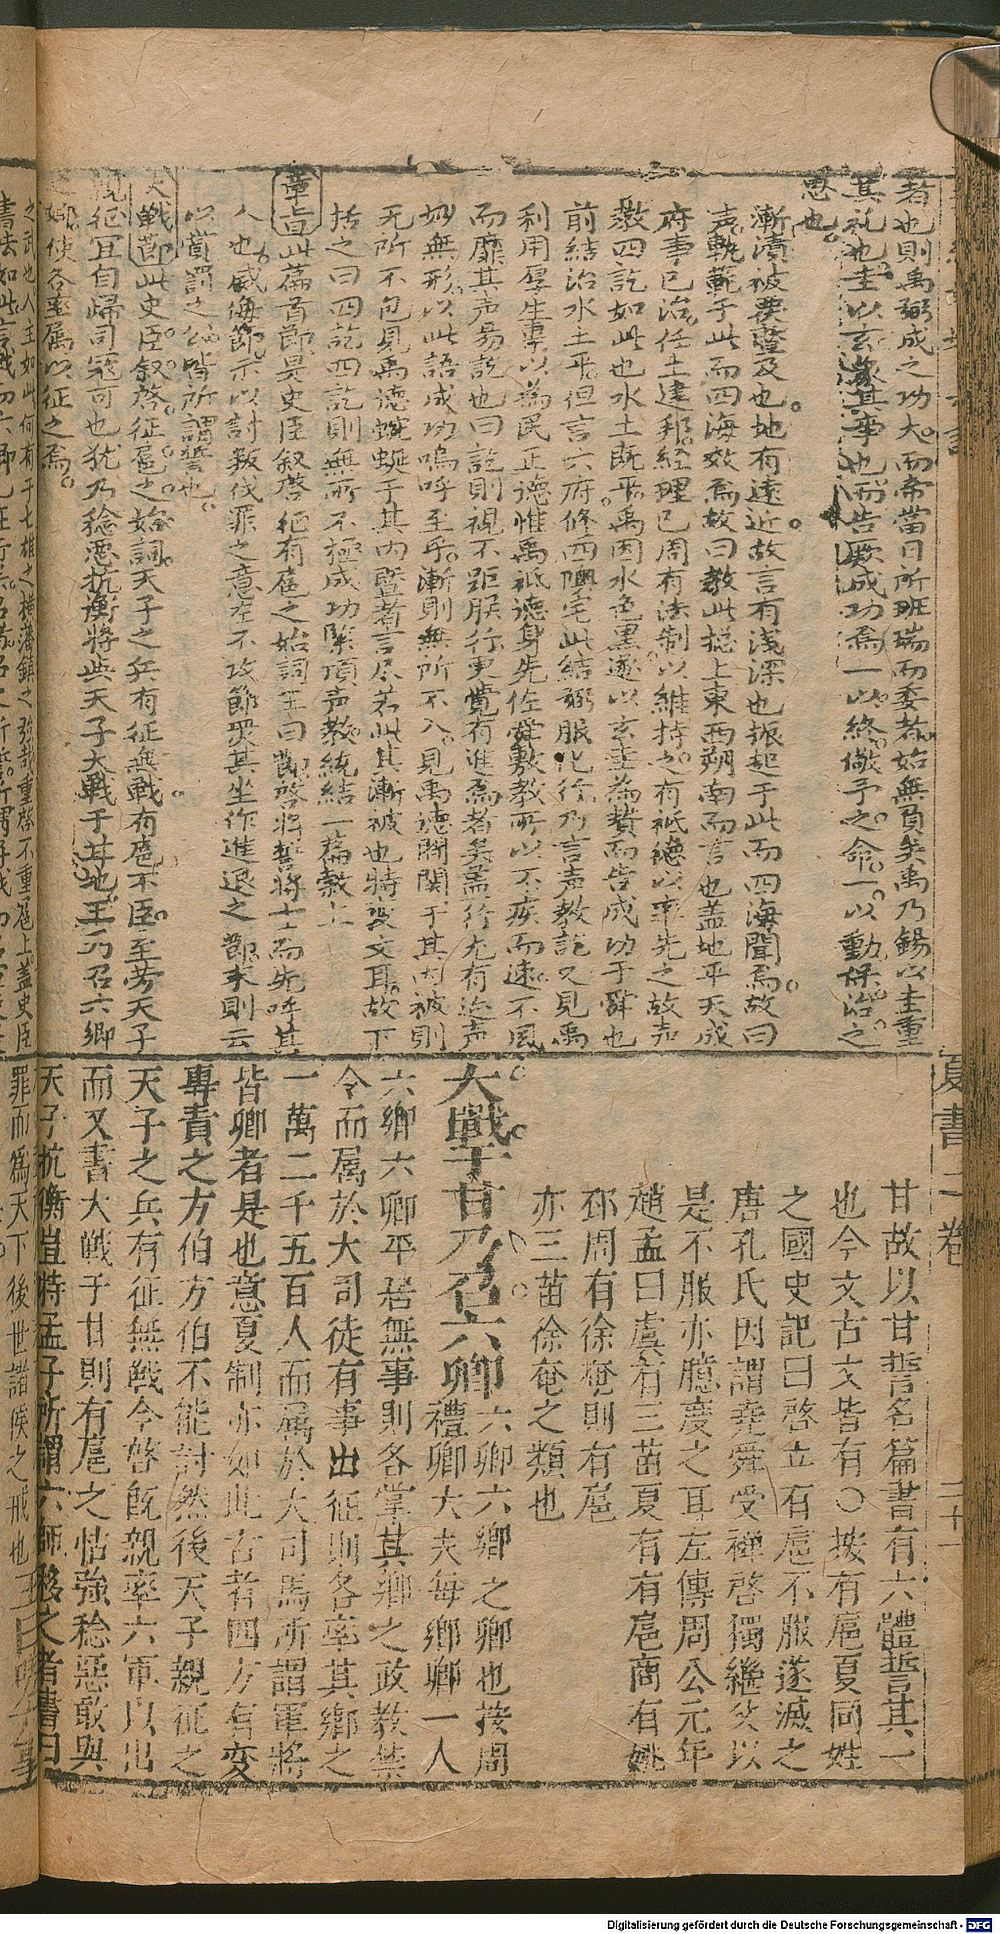 者也則禹弼成之功大而帝當日所班瑞而委者始無負矣禹乃錫以圭重
其礼也圭以玄遂其事也而告厥成功焉一以終儆予之命一以動保治之
思也
漸漬被覆曁及也地有遠近故言有浅深也振起于此而四海聞焉故曰
声軌範于此而四海效焉故曰教此捴上東西朔南而言也盖地平天成
府事已治任土建邦経理已周有法制以維持之有祇徳以率先之故声
教四訖如此也水土既平禹因水色黒遂以玄圭為贄而告成功于舜也
前結治水土平但言六府修四隩宅此結弼服化行乃言声教訖又見禹
利用厚生事以為民正徳惟禹祗徳身先佐舜敷教所以不疾而速不風
而靡其声易訖也曰訖則視不距朕行更覺有進焉者矣盖行尤有迹声
妙無形以此語成功嗚呼至乎漸則無所不入見禹徳関于其内被則
无所不包見禹徳蜿蜒于其内曁者言尽若此其漸被也特変文耳故下
括之曰四訖四訖則無所不極成功緊頂声教統結一篇教上
章旨此篇首節是史臣叙啓征有扈之始詞王曰節啓将誓将士而先呼其
人也威侮節示以討叛伐罪之意左不攻節嚴其坐作進退之節末則云
以賞罰之公皆所謂誓也
大戰節此史臣叙啓征扈之始詞天子之兵有征無戰有扈不臣至劳天子
親征宜自歸司冦可也犹乃稔悪抗衡將與天子大戰于甘地王乃召六卿
使各率属以征之焉
甘故以甘誓名篇書有六體誓其一
也今文古文皆有○按有扈夏同姓
之國史記曰啓立有扈不服遂滅之
唐孔氏因謂堯舜受禪啓獨繼父以
是不服亦臆度之耳左傳周公元年
趙孟曰虞有三苗夏有有扈商有姺
邳周有徐奄則有扈
亦三苗徐奄之類也
大戰于甘乃召六卿六卿六鄉之卿也按周
禮鄉大夫每鄉卿一人
六鄉六卿平居無事則各掌其鄉之政教禁
令而属於大司徒有事出征則各率其鄉之
一萬二千五百人而属於大司馬所謂軍將
皆卿者是也意夏制亦如此古者四方有変
專責之方伯方伯不能討然後天子親征之
天子之兵有征無戰今啓旣親率六軍以出
而又書大戰于甘則有扈之怙強稔惡敢與
天子抗衡豈特孟子所謂六師移之者書曰
夏書二卷